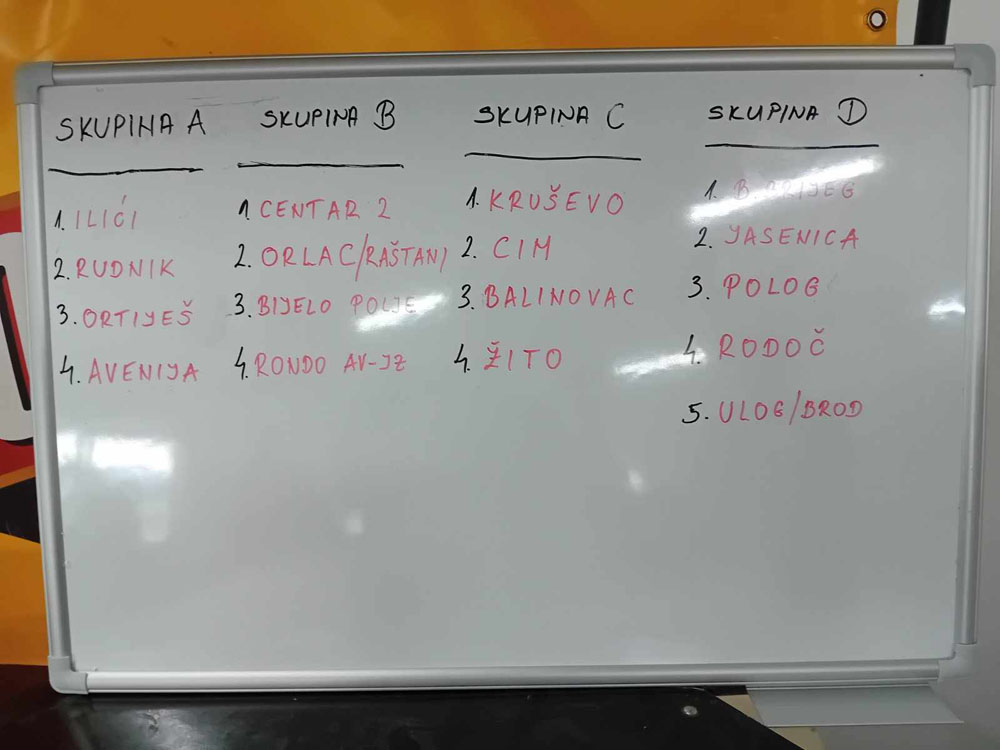 SKUPINA A
1. ILIĆI
2. RUDNIK
3. ORTIJEŠ
4. AVENIJA
SKUPINA B
1. CENTAR 2
2. ORLAC/RAŠTANI
3. BIJELO POLJE
4. RONDO AV-JZ
SKUPINA C
1. KRUŠEVO
2. CIM
3. BALINOVAC
4. ŽITO
SKUPINA D
1. B. BRIJEG
2. JASENICA
3. POLOG
4. RODOČ
5. ULOG/BROD